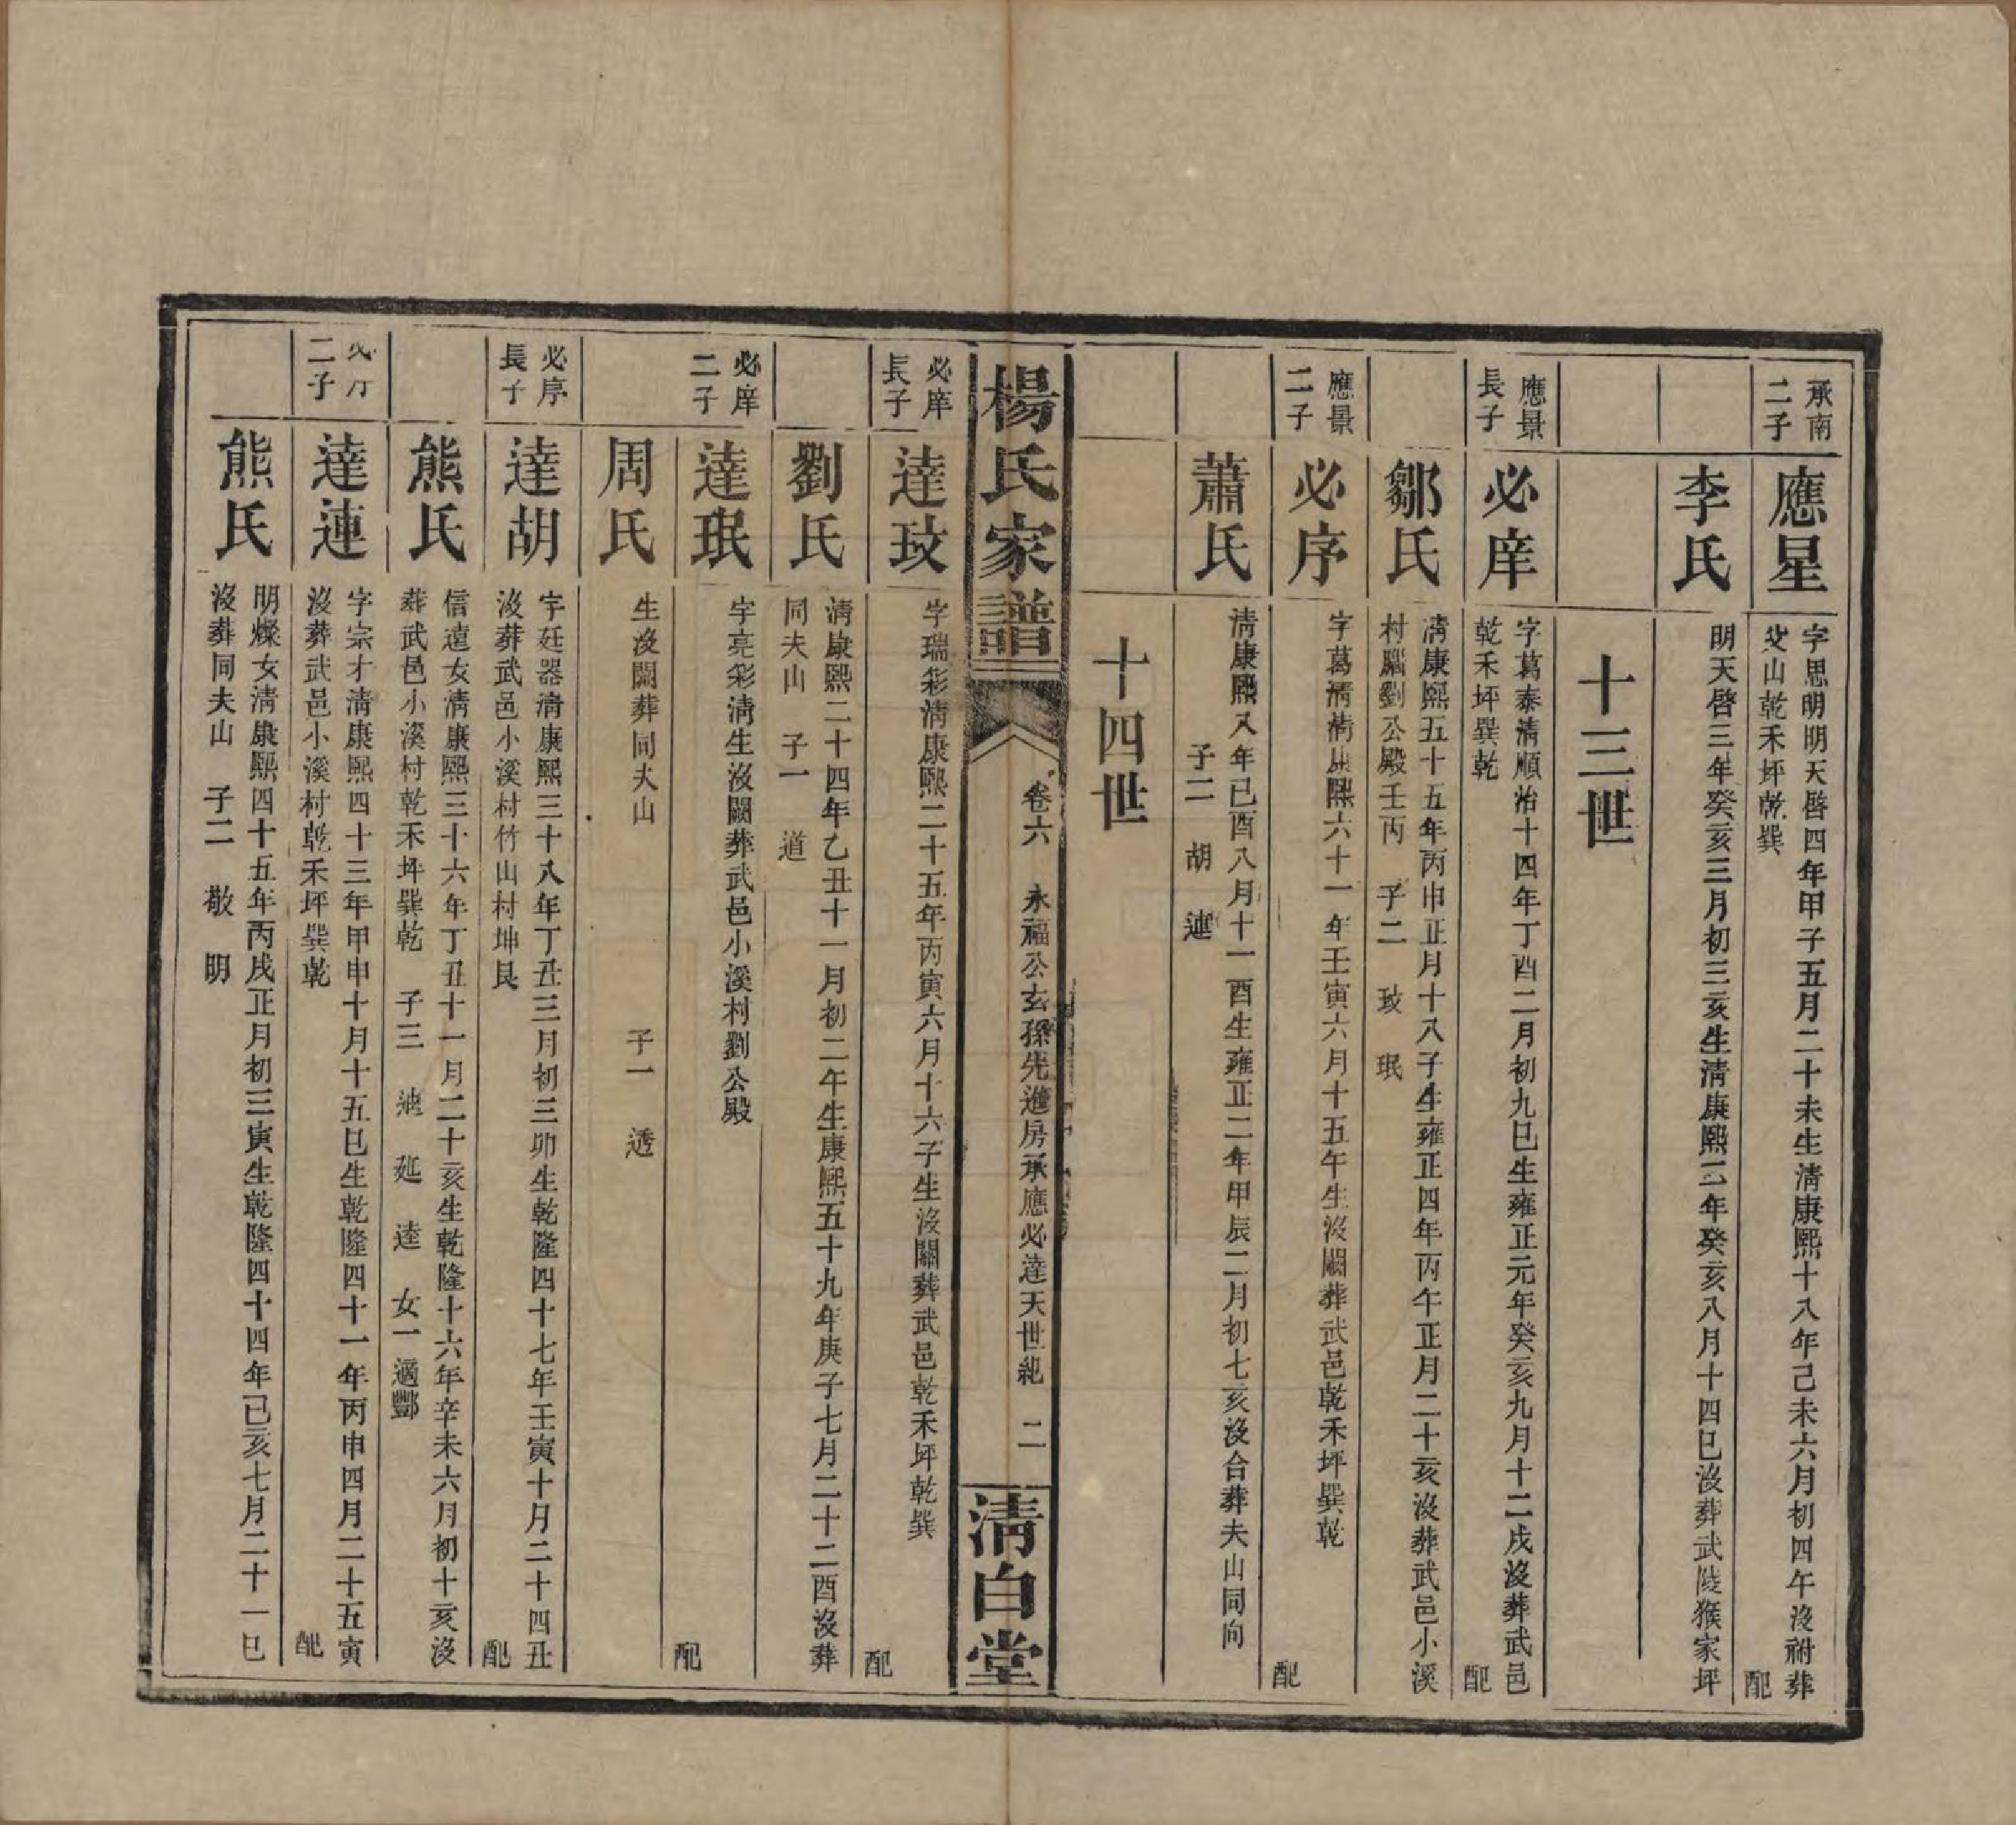 承南
二子
應星
字思明明天啓四年甲子五月二十未生清康熙十八年己未六月初四午沒祔葬
父山乾禾坪乾巽
配
李氏
明天啓三年癸亥三月初三亥生清康熙二年癸亥八月十四巳沒葬武陵猴家坪
十三世
應景
長子
必庠
字葛泰清順治十四年丁酉二月初九巳生雍正元年癸亥九月十二戌沒葬武邑
乾禾坪巽乾
配
鄒氏
清康熙五十五年丙申正月十八子生雍正四年丙午正月二十亥沒葬武邑小溪
村腦劉公殿壬丙 子二 玫 珉
應景
二子
必序
字葛清清康熙六十一年壬寅六月十五午生沒闕葬武邑乾禾坪巽乾
配
蕭氏
清康熙八年己酉八月十一酉生雍正二年甲辰二月初七亥沒合葬夫山同向
子二 胡 連
十四世
楊氏家譜
卷六 永福公玄孫先進房承應必達天世紀 二
清白堂
必庠
長子
達玫
字瑞彩清康熙二十五年丙寅六月十六子生沒闕葬武邑乾禾坪乾巽
配
劉氏
清康熙二十四年乙丑十一月初二午生康熙五十九年庚子七月二十二酉沒葬
同夫山 子一 道
必庠
二子
達珉
字亮彩清生沒闕葬武邑小溪村劉公殿
配
周氏
生沒闕葬同夫山 子一 透
必序
長子
達胡
字廷器清康熙三十八年丁丑三月初三卯生乾隆四十七年壬寅十月二十四丑
沒葬武邑小溪村竹山村坤艮
配
熊氏
信遠女清康熙三十六年丁丑十一月二十亥生乾隆十六年辛未六月初十亥沒
葬武邑小溪村乾禾坪巽乾 子三 迪 延 逵 女一適酆
必序
二子
達連
字宗才清康熙四十三年甲申十月十五巳生乾隆四十一年丙申四月二十五寅
沒葬武邑小溪村乾禾坪巽乾
配
熊氏
明燦女清康熙四十五年丙戌正月初三寅生乾隆四十四年己亥七月二十一巳
沒葬同夫山 子二 敬 明